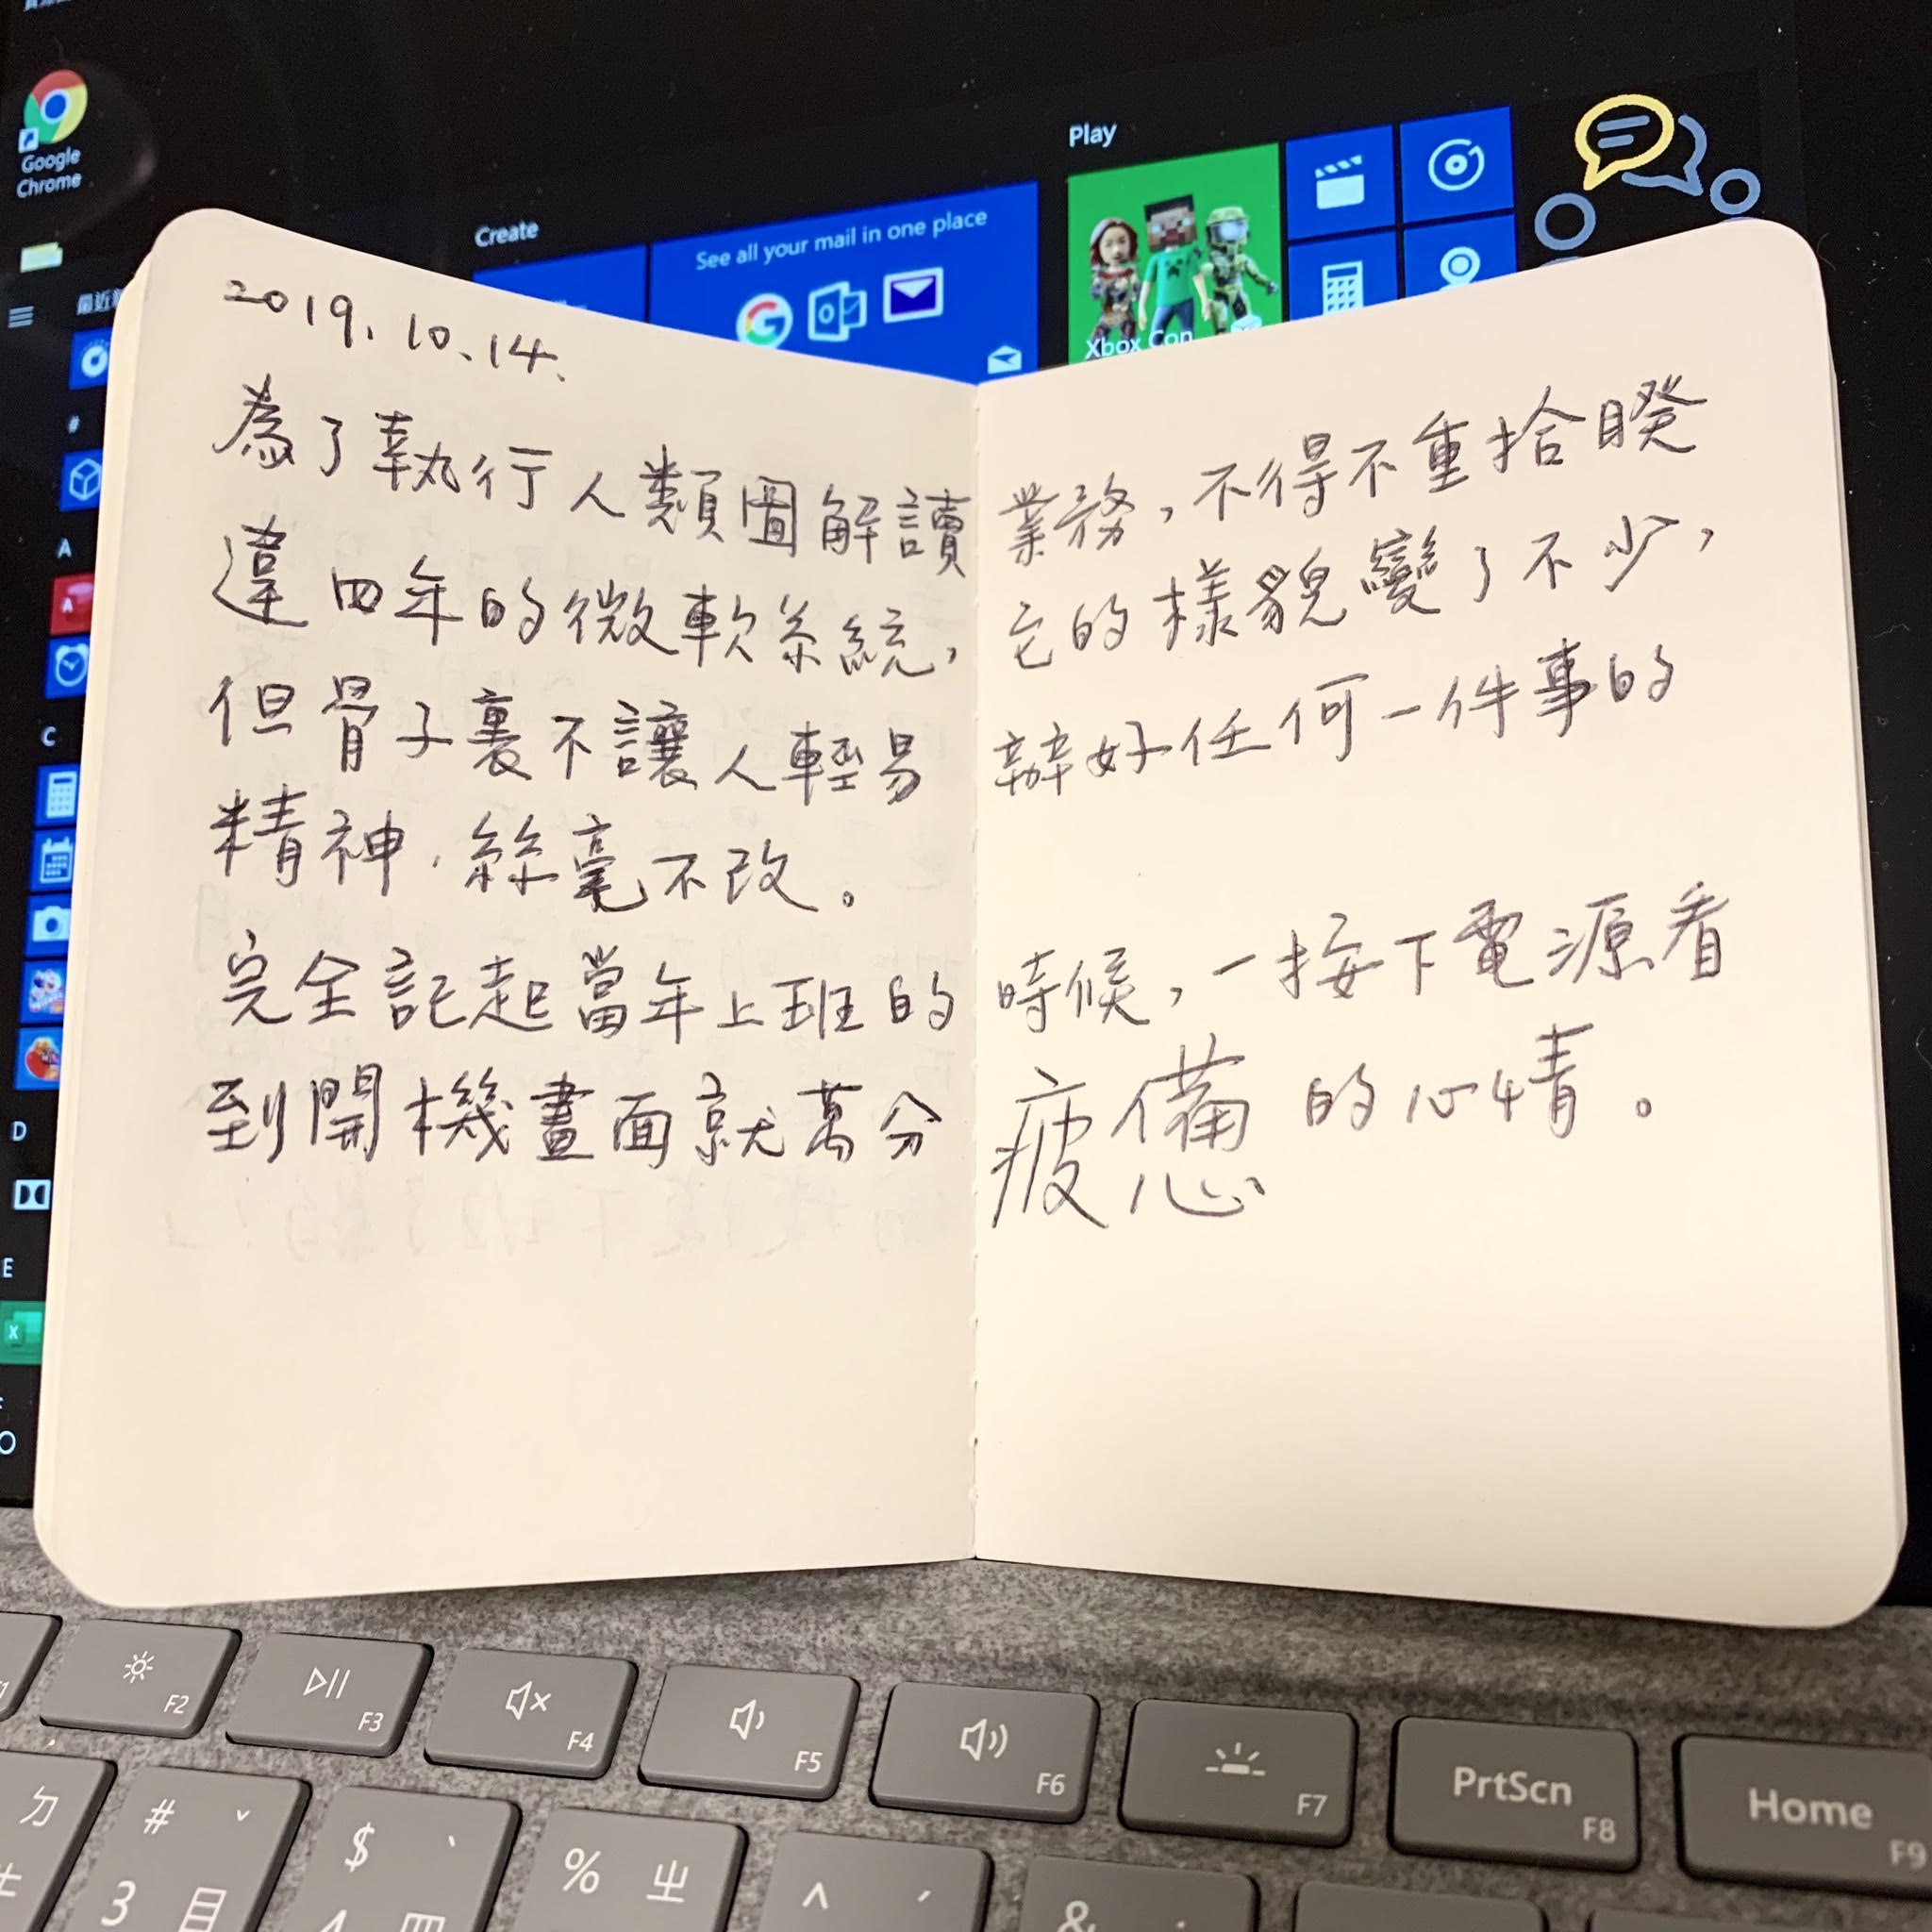 Google
Chrome
Create
See all your mail in one place
Play
Xbox Con
最近
#
A
C
D
E
2019.10.14.
為了執行人類圖解讀業務,不得不重拾睽
違四年的微軟系統,它的樣貌變了不少,
但骨子裏不讓人輕易辦好任何一件事的
精神,絲毫不改。
完全記起當年上班的時候,一按下電源看
到開機畫面就萬分疲憊的心情。
F2
F3
F4
F5
F6
F7
PrtScn F8
Home F9
ㄉ
# ˇ
3
$ ˋ
4
% ㄓ
^ ˊ
& ˙